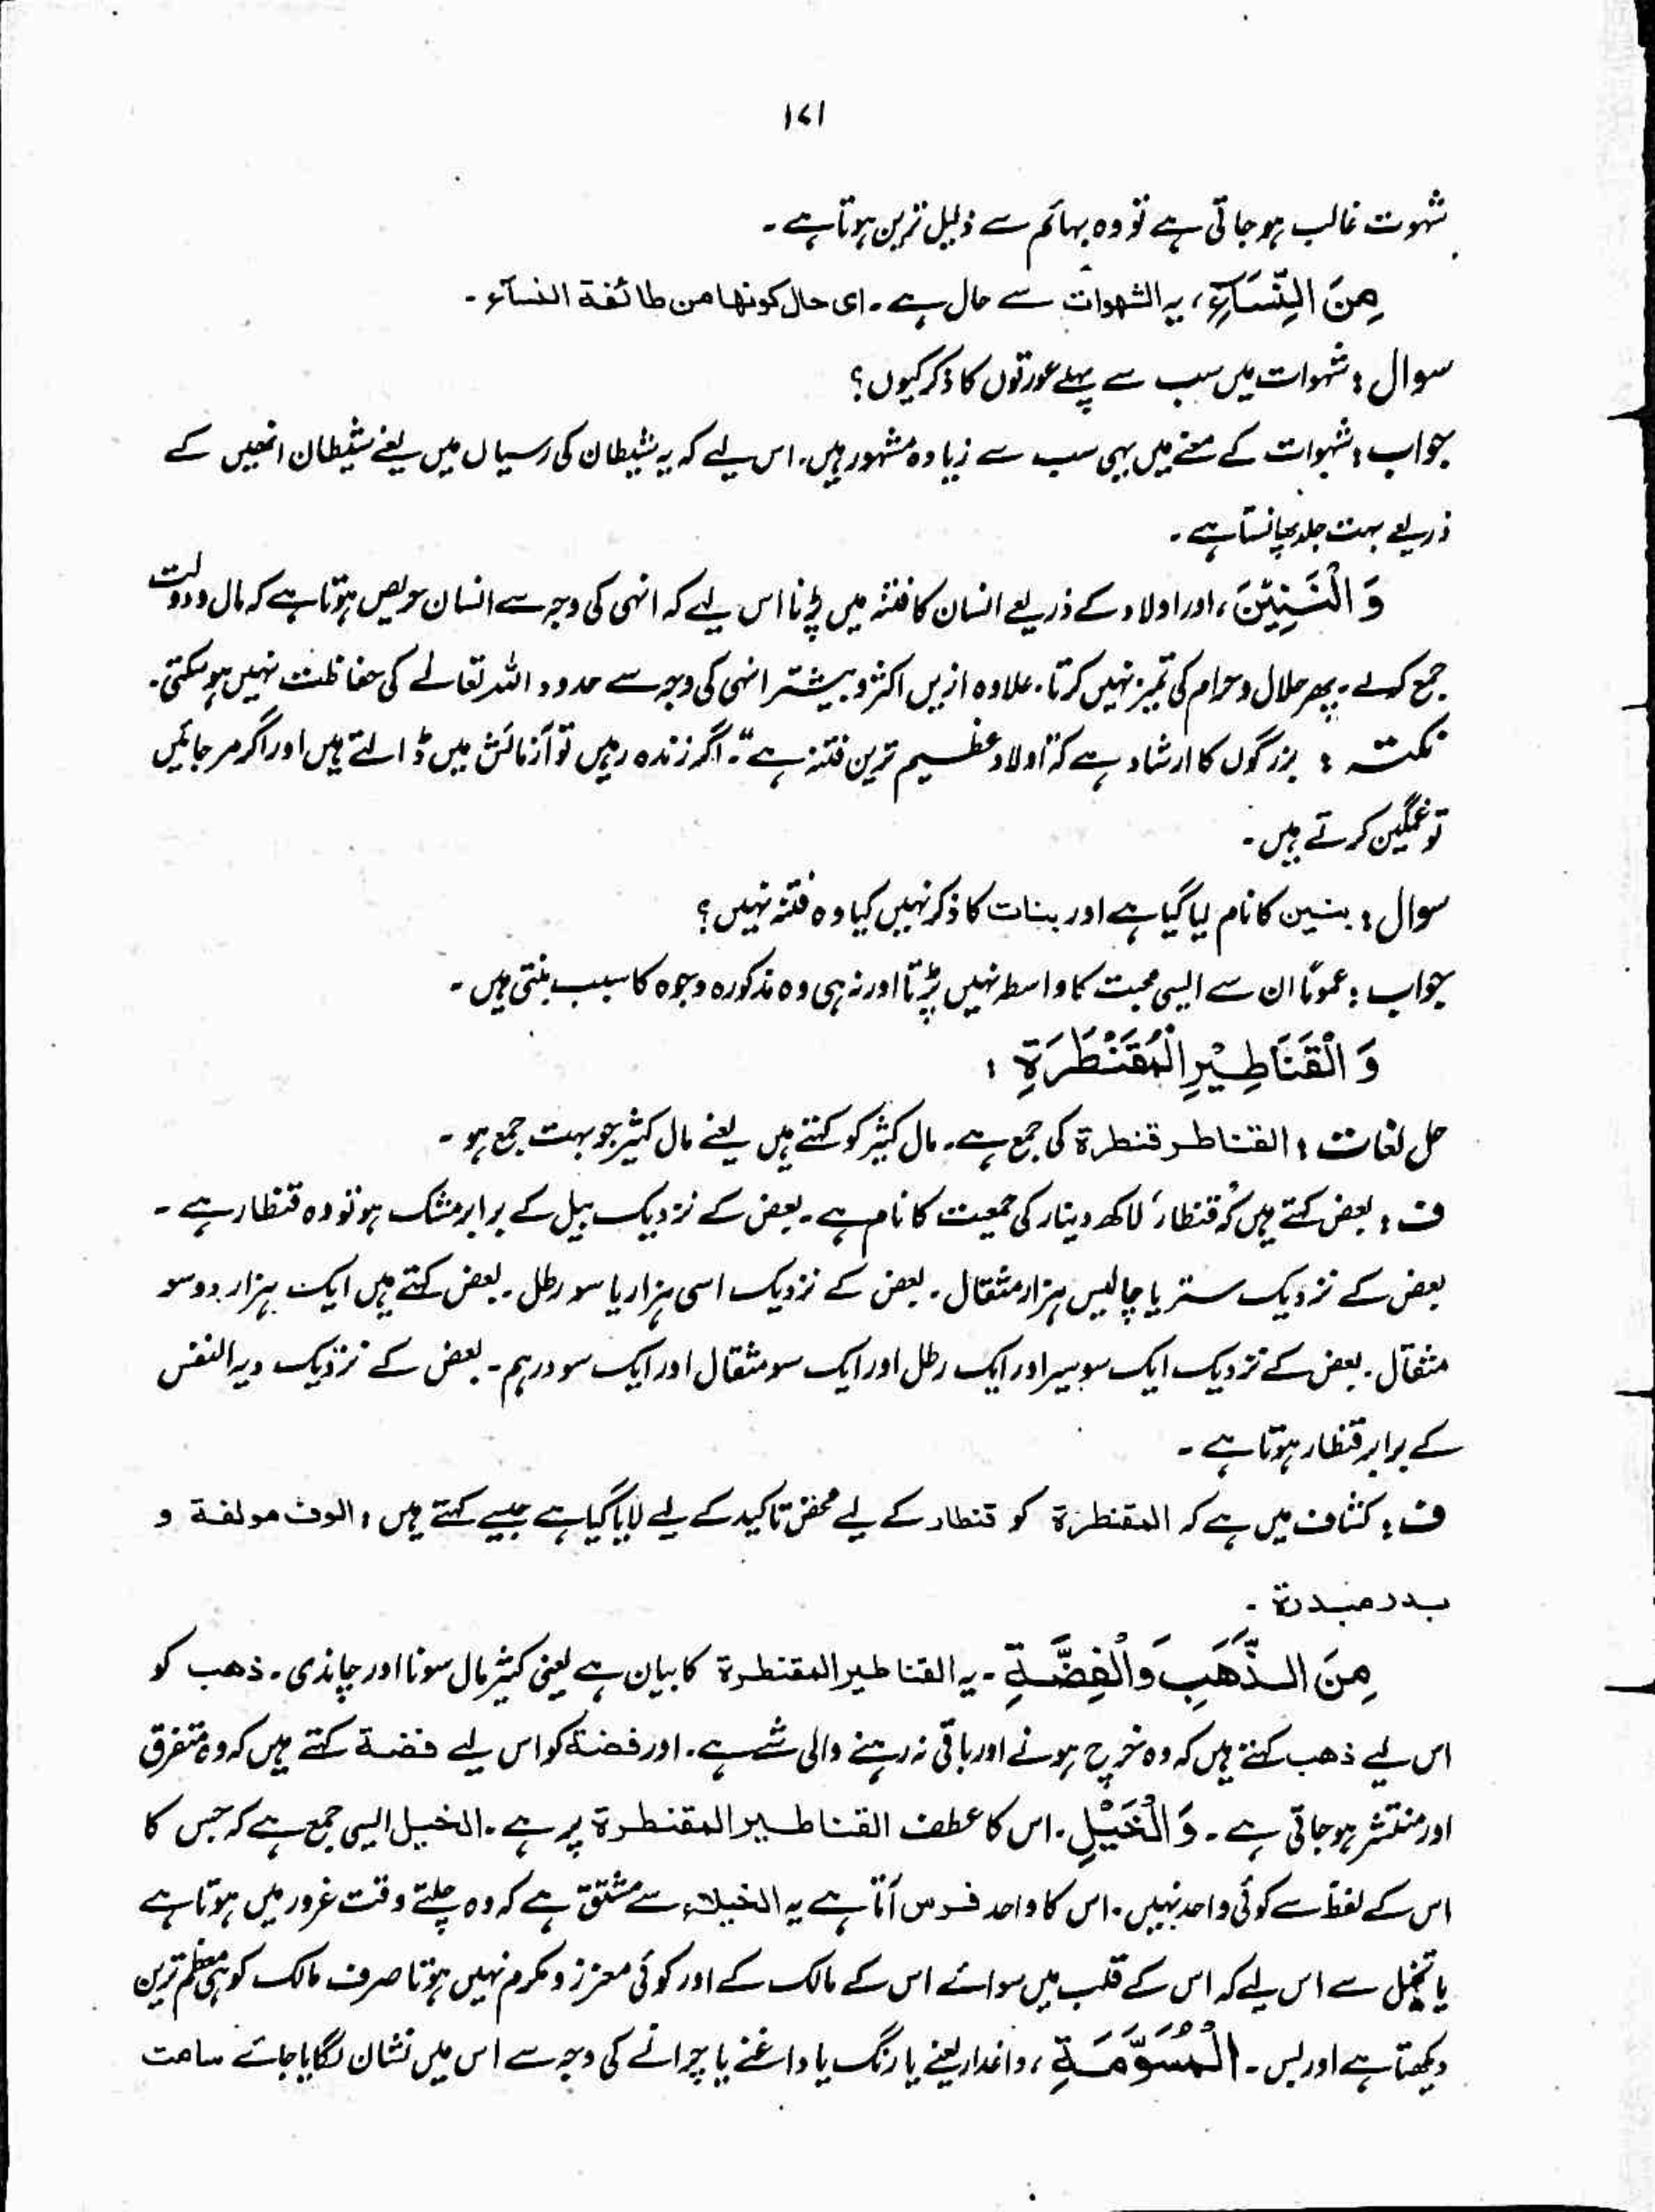 ۱۷۱
شہوت غالب ہو جاتی ہے تو وہ بہائم سے ذلیل ترین ہوتا ہے۔
مِنَ النِّسَآءِ، یہ الشهوات سے حال ہے۔ ای حال کونها من طائفة النسآء۔
سوال : شہوات میں سب سے پہلے عورتوں کا ذکر کیوں؟
جواب : شہوات کے معنے میں یہی سب سے زیادہ مشہور ہیں۔ اس لیے کہ یہ شیطان کی رسیاں ہیں یعنے شیطان انھیں کے
ذریعے بہت جلد پھانستا ہے۔
وَ الْبَنِيْنَ، اور اولاد کے ذریعے انسان کا فتنہ میں پڑنا اس لیے کہ انہی کی وجہ سے انسان حریص ہوتا ہے کہ مال و دولت
جمع کرلے۔ پھر حلال و حرام کی تمیز نہیں کرتا۔ علاوہ ازیں اکثر و بیشتر انہی کی وجہ سے حدود اللہ تعالے کی حفاظت نہیں ہو سکتی۔
نکتہ : بزرگوں کا ارشاد ہے کہ "اولاد عظیم ترین فتنہ ہے"۔ اگر زندہ رہیں تو آزمائش میں ڈالتے ہیں اور اگر مر جائیں
تو غمگین کرتے ہیں۔
سوال : بنین کا نام لیا گیا ہے اور بنات کا ذکر نہیں کیا وہ فتنہ نہیں؟
جواب : عموماً ان سے ایسی محبت کا واسطہ نہیں پڑتا اور نہ ہی وہ مذکورہ وجوہ کا سبب بنتی ہیں۔
وَ الْقَنَاطِيْرِ الْمُقَنْطَرَةِ :
حل لغات : القناطر قنطرة کی جمع ہے۔ مال کثیر کو کہتے ہیں یعنے مال کثیر جو بہت جمع ہو۔
ف : بعض کہتے ہیں کہ "قنطار" لاکھ دینار کی جمعیت کا نام ہے۔ بعض کے نزدیک بیل کے برابر مشک ہو تو وہ قنطار ہے۔
بعض کے نزدیک ستر یا چالیس ہزار مثقال۔ بعض کے نزدیک اسی ہزار یا سو رطل۔ بعض کہتے ہیں ایک ہزار دو سو
مثقال۔ بعض کے نزدیک ایک سو سیر اور ایک رطل اور ایک سو مثقال اور ایک سو درہم۔ بعض کے نزدیک دیۃ النفس
کے برابر قنطار ہوتا ہے۔
ف : کشاف میں ہے کہ المقنطرة کو قنطار کے لیے محض تاکید کے لیے لایا گیا ہے جیسے کہتے ہیں : الوف مولفة و
بدر مبدرة۔
مِنَ الذَّهَبِ وَ الْفِضَّةِ۔ یہ القناطیر المقنطرة کا بیان ہے یعنی کثیر مال سونا اور چاندی۔ ذهب کو
اس لیے ذهب کہتے ہیں کہ وہ خرچ ہونے اور باقی نہ رہنے والی شے ہے۔ اور فضة کو اس لیے فضة کہتے ہیں کہ وہ متفرق
اور منتشر ہو جاتی ہے۔ وَ الْخَيْلِ۔ اس کا عطف القناطير المقنطرة پر ہے۔ الخیل ایسی جمع ہے کہ جس کا
اس کے لفظ سے کوئی واحد نہیں۔ اس کا واحد فرس آتا ہے یہ الخيلاء سے مشتق ہے کہ وہ چلتے وقت غرور میں ہوتا ہے
یا تخیل سے اس لیے کہ اس کے قلب میں سوائے اس کے مالک کے اور کوئی معزز و مکرم نہیں ہوتا صرف مالک کو ہی معظم ترین
دیکھتا ہے اور بس۔ الْمُسَوَّمَةِ، داغدار یعنے یا رنگ یا داغنے یا چرانے کی وجہ سے اس میں نشان لگایا جائے سامت